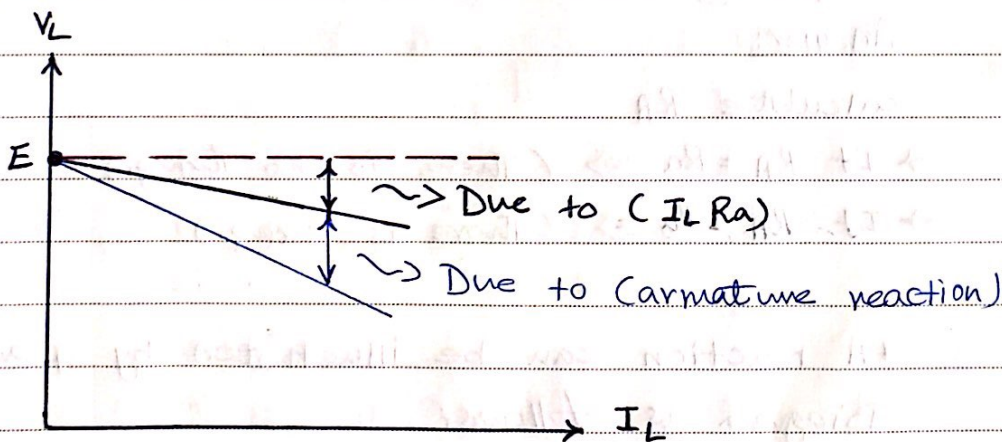 V_L
E
~> Due to (I_L Ra)
~> Due to (armature reaction)
I_L